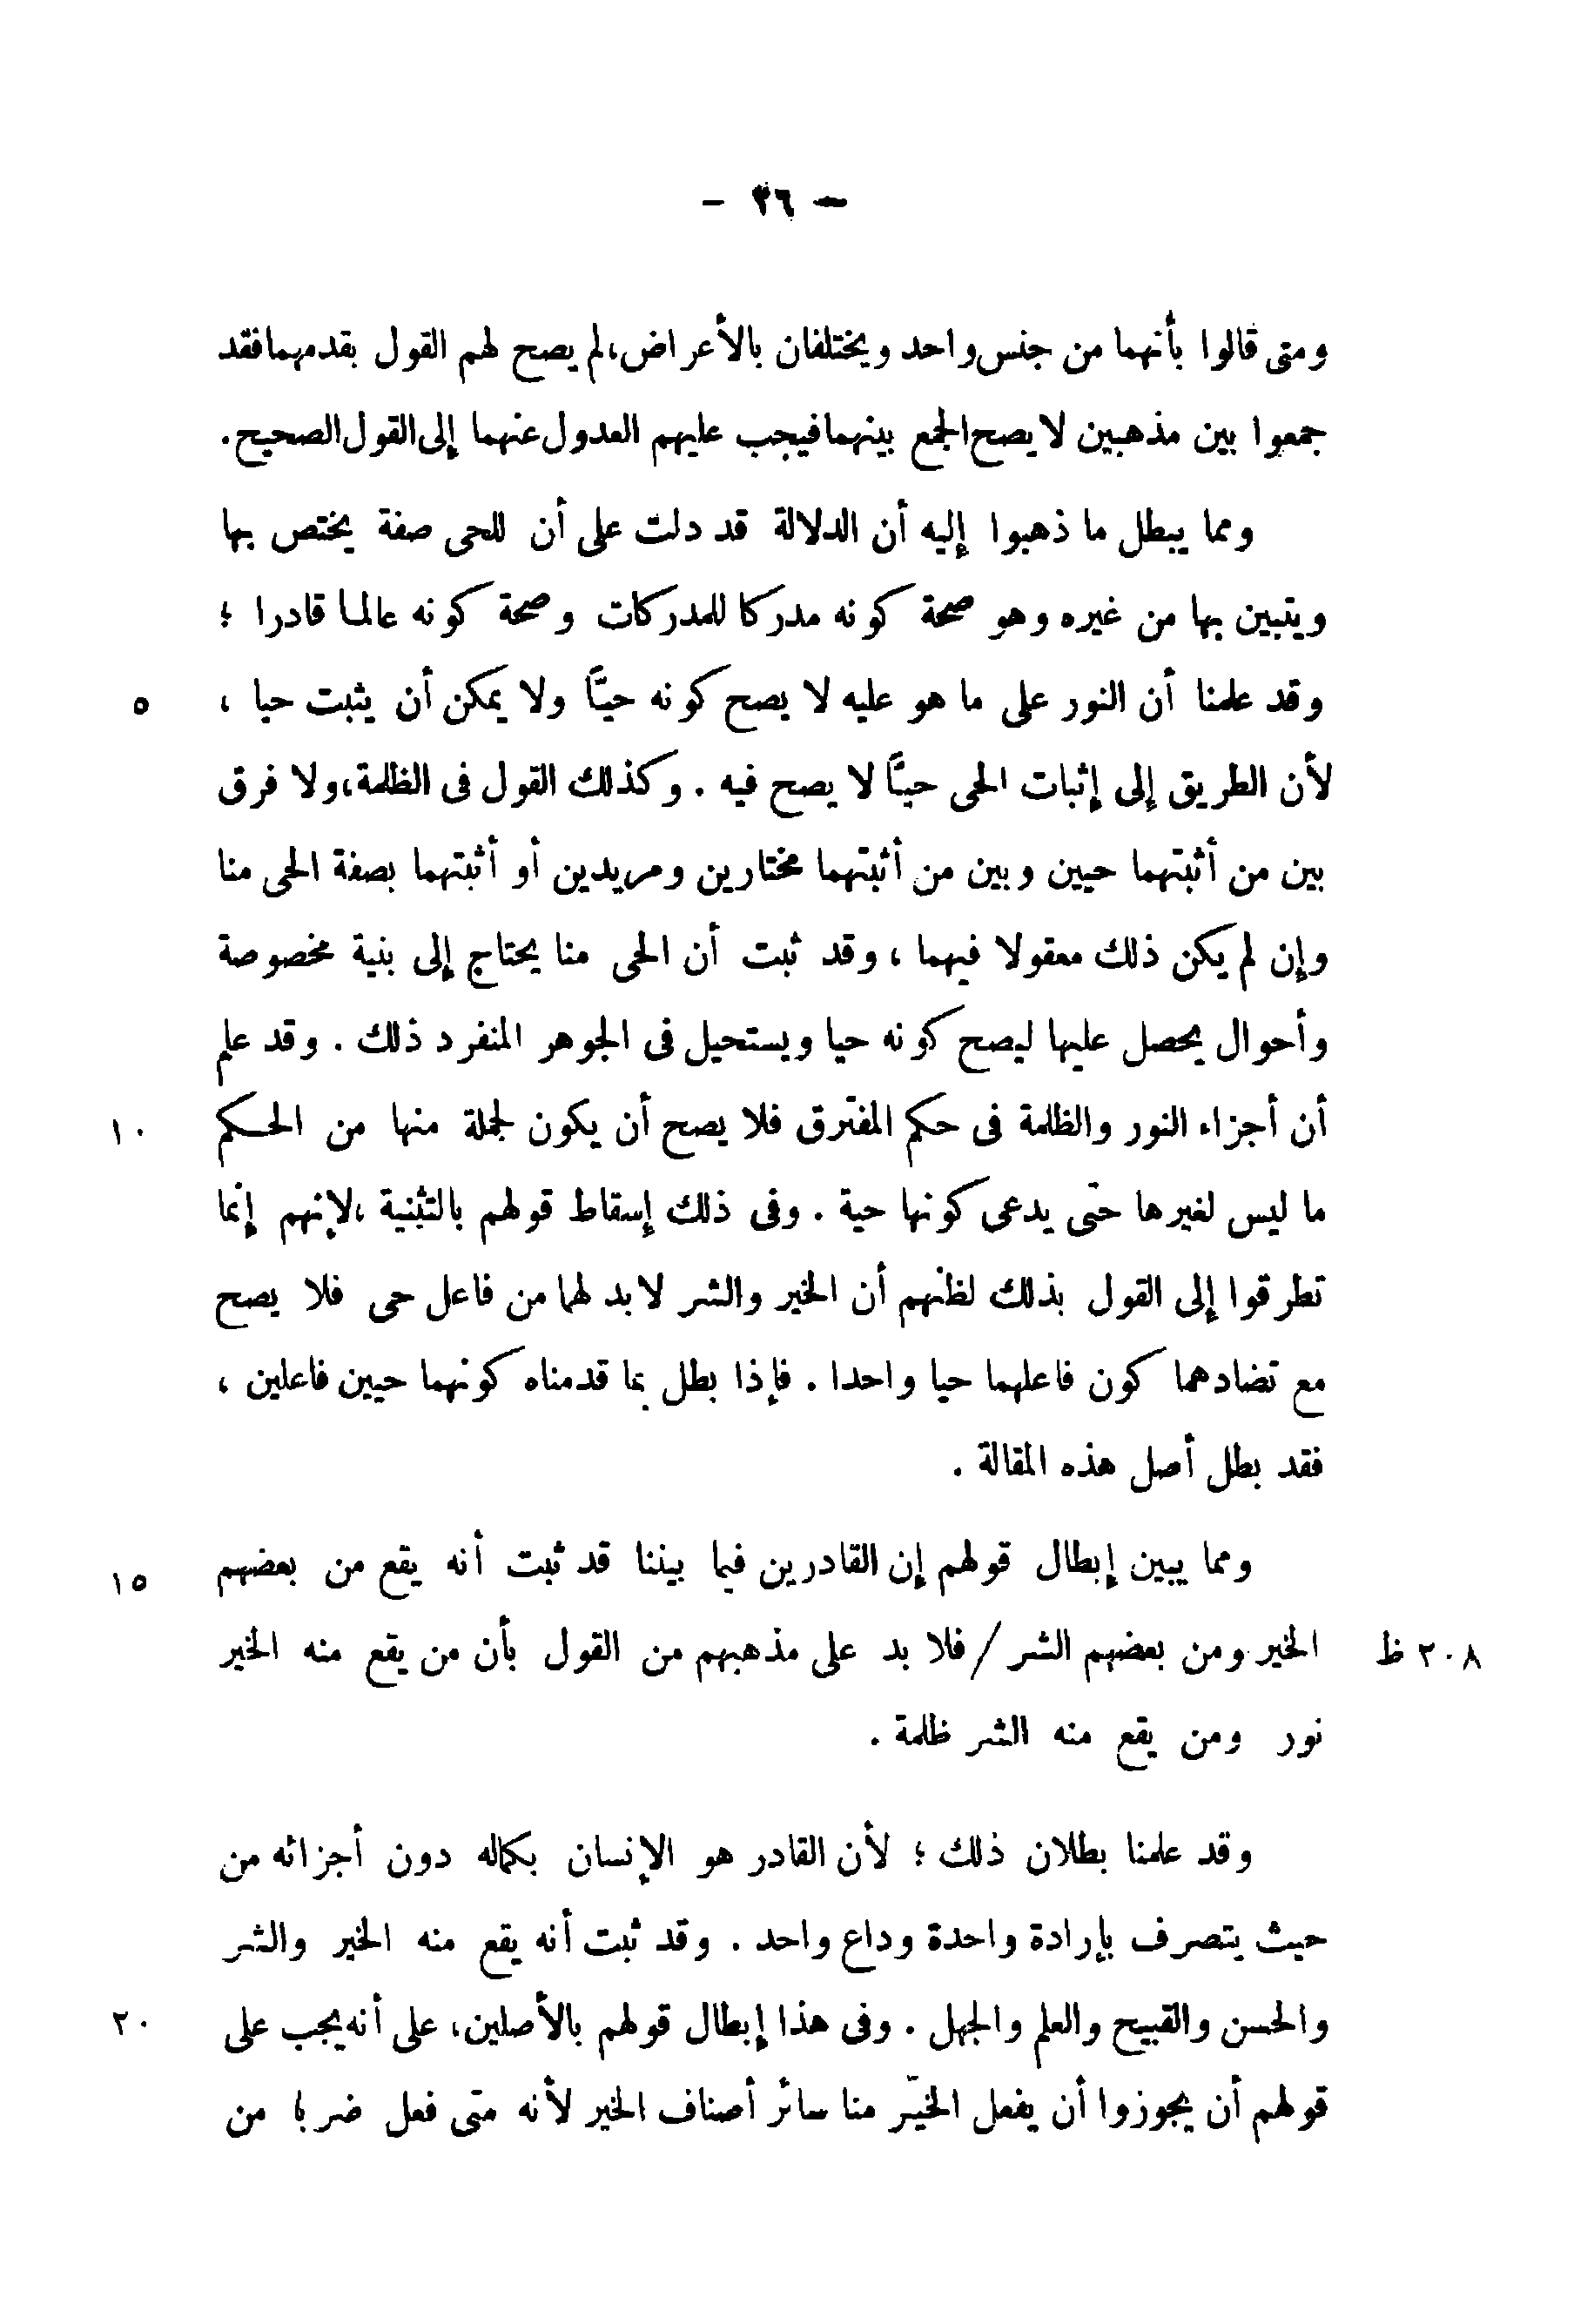 — ٣٦ —
ومتى قالوا بأنهما من جنس واحد ويختلفان بالأعراض، لم يصح لهم القول بقدمهما فقد
جمعوا بين مذهبين لا يصح الجمع بينهما فيجب عليهم العدول عنهما إلى القول الصحيح .
ومما يبطل ما ذهبوا إليه أن الدلالة قد دلت على أن للحى صفة يختص بها
ويتبين بها من غيره وهو صحة كونه مدركا للمدركات وصحة كونه عالما قادرا ؛
وقد علمنا أن النور على ما هو عليه لا يصح كونه حيًّا ولا يمكن أن يثبت حيا ، ٥
لأن الطريق إلى إثبات الحى حيًّا لا يصح فيه . وكذلك القول فى الظلمة، ولا فرق
بين من أثبتهما حيين وبين من أثبتهما مختارين ومريدين أو أثبتهما بصفة الحى منا
وإن لم يكن ذلك معقولا فيهما ، وقد ثبت أن الحى منا يحتاج إلى بنية مخصوصة
وأحوال يحصل عليها ليصح كونه حيا ويستحيل فى الجوهر المنفرد ذلك . وقد علم
أن أجزاء النور والظلمة فى حكم المفترق فلا يصح أن يكون لجملة منها من الحكم ١٠
ما ليس لغيرها حتى يدعى كونها حية . وفى ذلك إسقاط قولهم بالتثنية ، لإنهم إنما
تطرقوا إلى القول بذلك لظنهم أن الخير والشر لا بد لهما من فاعل حى فلا يصح
مع تضادهما كون فاعلهما حيا واحدا . فإذا بطل بما قدمناه كونهما حيين فاعلين ،
فقد بطل أصل هذه المقالة .
ومما يبين إبطال قولهم إن القادرين فيما بيننا قد ثبت أنه يقع من بعضهم ١٥
٢٠٨ ظ الخير ومن بعضهم الشر / فلا بد على مذهبهم من القول بأن من يقع منه الخير
نور ومن يقع منه الشر ظلمة .
وقد علمنا بطلان ذلك ؛ لأن القادر هو الإنسان بكماله دون أجزائه من
حيث يتصرف بإرادة واحدة وداع واحد . وقد ثبت أنه يقع منه الخير والشر
والحسن والقبيح والعلم والجهل . وفى هذا إبطال قولهم بالأصلين، على أنه يجب على ٢٠
قولهم أن يجوزوا أن يفعل الخيّر منا سائر أصناف الخير لأنه متى فعل ضربا من